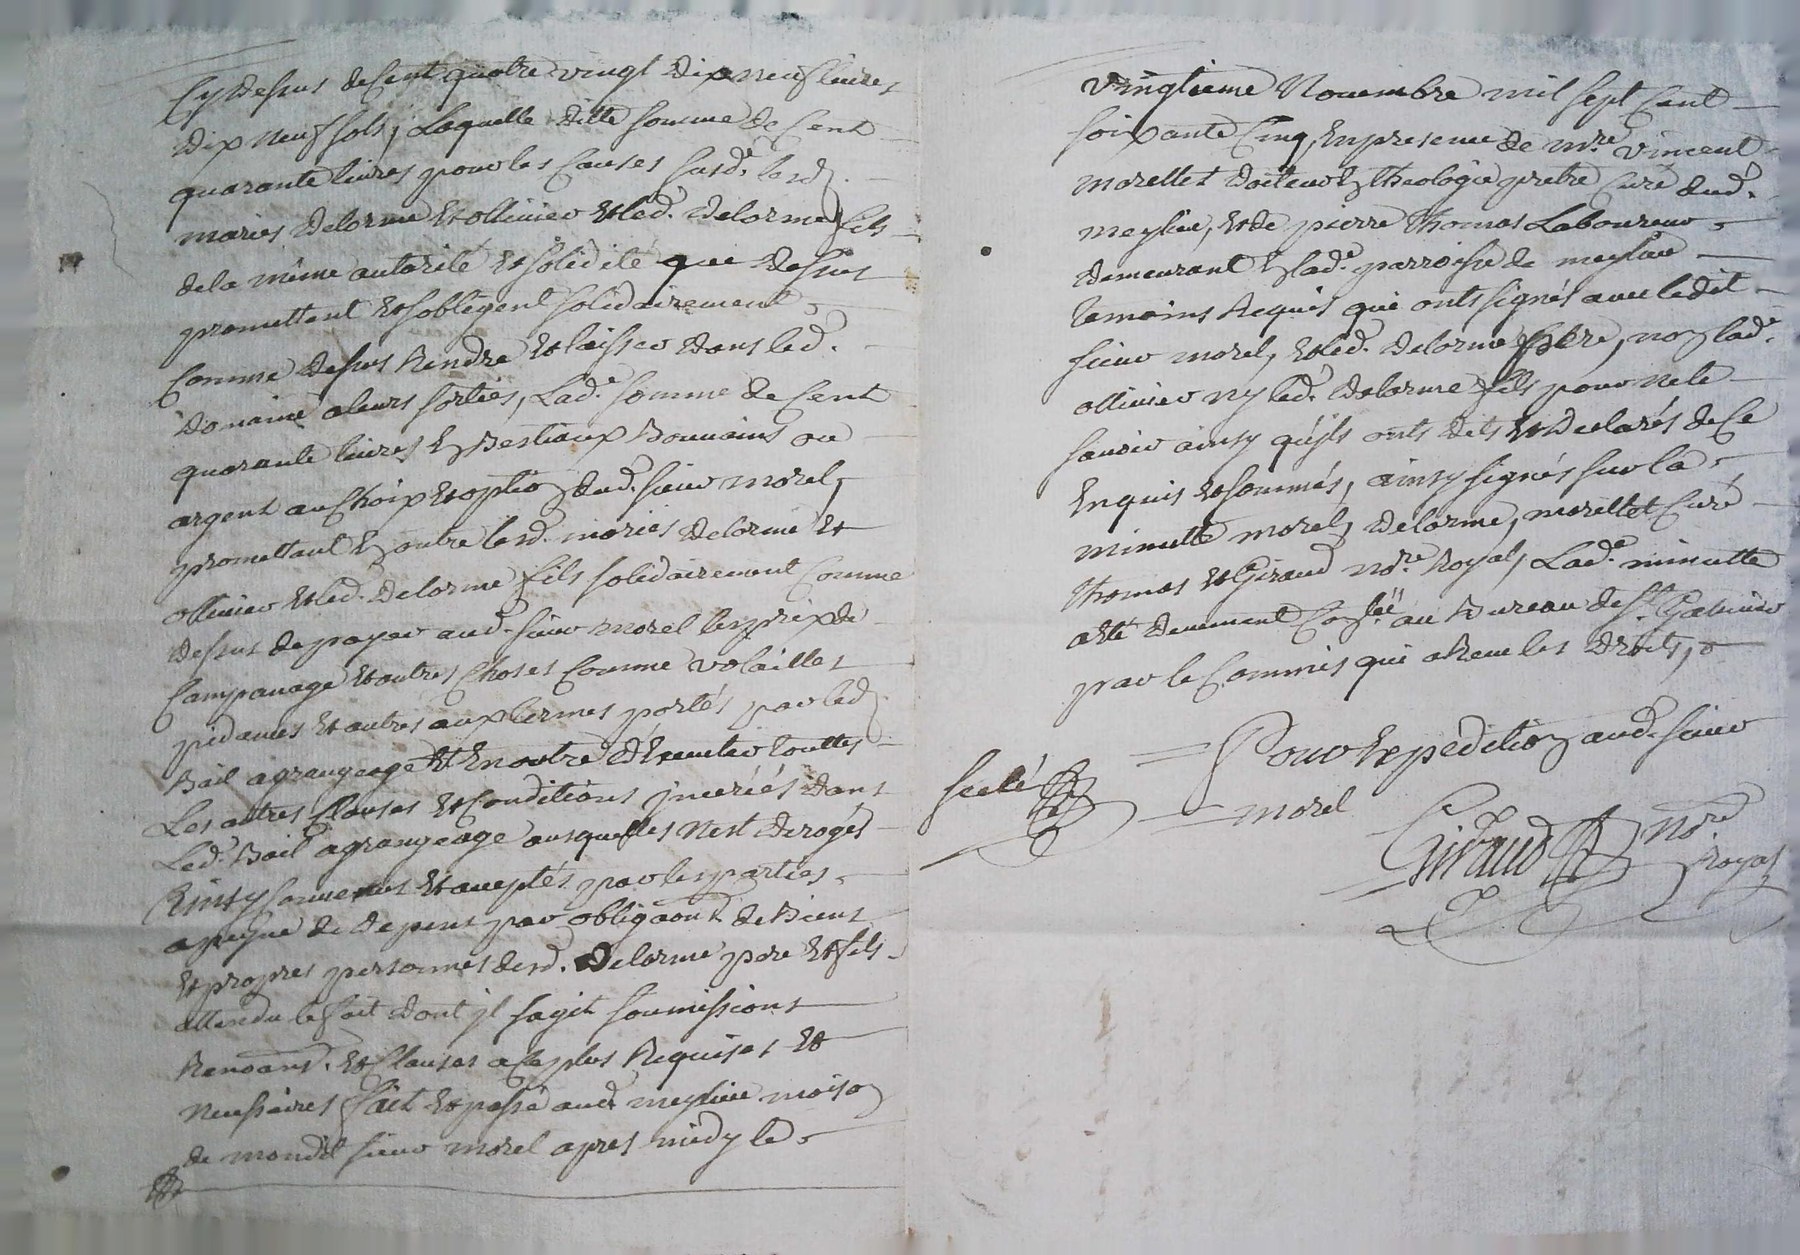 Cy dessus de Cent quatre vingt dix neuf livres
dix neuf sols, Laquelle ditte somme de Cent
quarante livres pour les Causes susd.es lesd.
mariés Delorme et ollivier et led. Delorme fils
de la même autorité et solidité que dessus
promettent et soblegent solidairement
Comme dessus Rendre et laisser dans led.
Domaine a leurs sorties, Lad.e somme de Cent
quarante livres en Bestiaux Bouvains ou
argent au Choix et option dud. sieur morel,
promettant en outre lesd. mariés Delorme et
ollivier et led. Delorme fils solidairement Comme
dessus de payer aud. sieur morel le prix de
Campanage et autres Choses Comme volailles
pidances et autres aux termes portés par led.
Bail a grangeage et En outre d'Executer touttes
Les autres Clauses et Conditions jnserées dans
Led. Bail a grangeage ausquelles n'est derogés
Ainsy Convenus et acceptés par les parties
a peyne de depens par obligaons de Biens
et propres personnes desd. Delorme pere et fils
attendu le fait dont jl sagit soumissions
Renoans. et Clauses a Ce plus Requises et
necessaires fait et passé aud. meylieu maison
de mondit sieur morel apres midy le
vingtieme Novembre mil sept Cent
soixante Cinq, En presence de m.re vincent
morellet docteur en theologie pretre Curé dud.
meylieu, et de pierre thomas Laboureur
demeurant en lad.e parroisse de meylieu
temoins Requis qui onts signés avec ledit
sieur morel, et led. Delorme pere, non lad.e
ollivier ny led. Delorme fils pour ne le
savoir ainsy qu'ils onts dits et declarés de Ce
Enquis et sommés, ainsy signés sur la
minutte morel, Delorme, morellet Curé
thomas et Giraud no.re Royal, Lad.e minutte
a été deuement au Bureau de s.t Galmier
par le Commis qui a Receu les droits,
Pour Expedition aud. sieur
scelé
morel
Giraud no.re
Royal